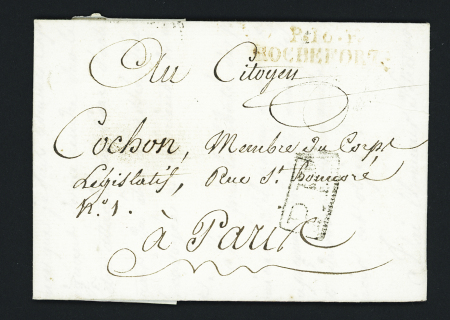 P.16.P.
ROCHEFORT
Au Citoyen
Cochon, Membre du Corps
Législatif, Rue St honnoré
N.º 1.
à Paris
P.P.